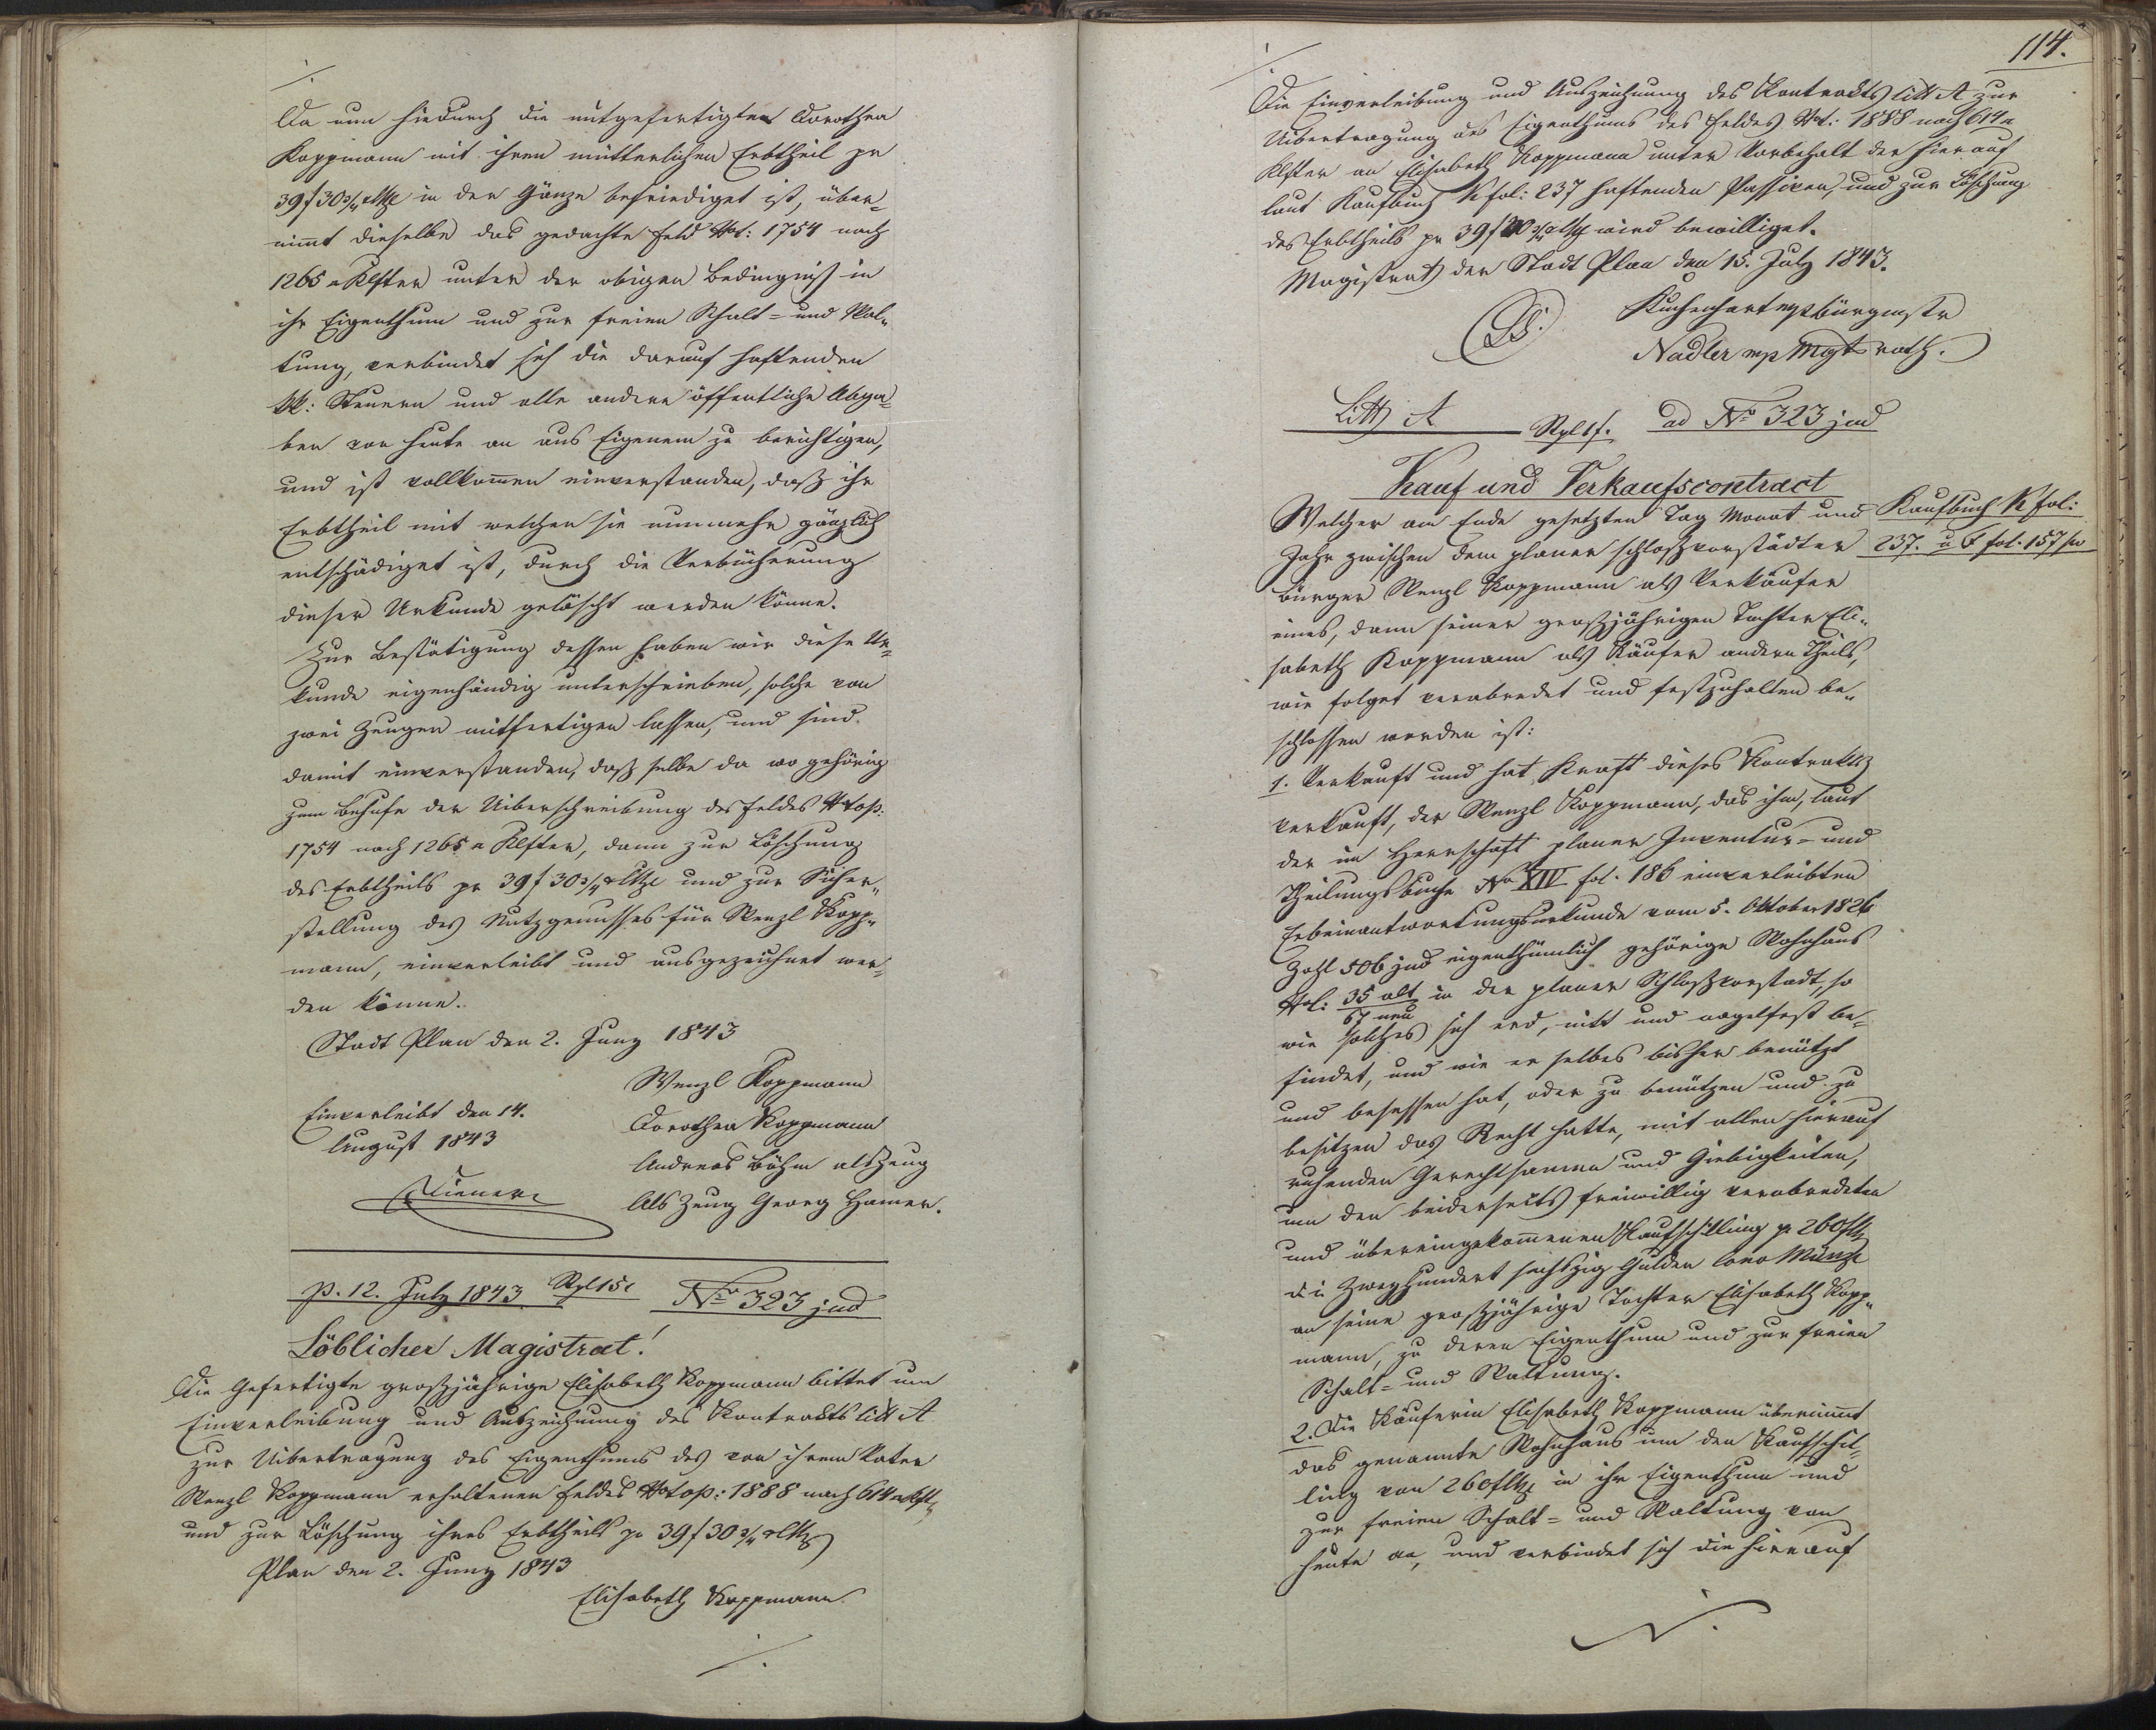 Da nun hiedurch die mitgefertigte Dorothea
Koppmann mit ihren mütterlichen Erbtheil pr
39 f 30 3/4 xCMze in der Gänze befriediget ist, über-
nimmt dieselbe das gedachte Feld Nrot: 1754 nach
1265 □ Klfter unter der obigen Bedingniß in
ihr Eigenthum und zur freien Schalt- und Wal-
tung, verbindet sich die darauf haftenden
kk: Steuern und alle andere öffentliche Abga-
ben von heute an aus Eigenem zu berichtigen,
und ist vollkommen einverstanden, daß ihr
Erbtheil mit welchen sie nunmehr gänzlich
entschädiget ist, durch die Verbücherung
dieser Urkunde gelöscht werden könne.
Zur Bestätigung dessen haben wir diese Ur-
kunde eigenhändig unterschrieben, solche von
zwei Zeugen mitfertigen lassen, und sind
damit einverstanden, daß selbe da wo gehörig
zum Behufe der Uiberschreibung des Feldes Nrtop:
1754 nach 1265 □ Klfter, dann zur Löschung
des Erbtheils pr 39 f 30 3/4 xCMze und zur Sicher-
stellung des Nutzgenusses für Wenzl Kopp-
mann, einverleibt und ausgezeichnet wer-
den könne.
Stadt Plan den 2. Juny 1843
Wenzl Koppmann
Einverleibt den 14.
Dorothea Koppmann
August 1843
Andreas Böhm als Zeug
Diener
Als Zeug Georg Hamer.
p. 12. July 1843 Stpl 15x No 323 jud
Löblicher Magistrat!
Die Gefertigte großjährige Elisabeth Koppmann bittet um
Einverleibung und Auszeichnung des Kontrakts litt A
zur Uibertragung des Eigenthums des von ihrem Vater
Wenzl Koppmann erhaltenen Feldes Nrtop: 1888 nach 614 □ Kft,
und zur Löschung ihres Erbtheils pr 39 f 30 3/4 xCMz
Plan den 2. Juny 1843
Elisabeth Koppmann
114.
Die Einverleibung und Auszeichnung des Kontrakts litt A zur
Uibertragung des Eigenthums des Feldes Nrot: 1888 nach 614 □
Klfter an Elisabeth Koppmann unter Vorbehalt der hierauf
laut Kaufbuch K fol: 237 haftenden Passiven, und zur Löschung
des Erbtheils pr 39 f 30 3/4 xCMz wird bewilliget.
Magistrat der Stadt Plan den 15. July 1843.
LS.
Kuchenhart mp Bürgmstr
Nadler mp Mgtsrath.
Litt A Stpl 1f. ad No 323 jud
Kauf und Verkaufscontract
Welcher am Ende gesetzten Tag Monat und
Kaufbuch K fol:
237. u F fol. 157
Jahr zwischen dem planer schloßvorstädter
Bürger Wenzl Koppmann als Verkäufer
eines, dann seiner großjährigen Tochter Eli-
sabeth Koppmann als Käufer andern Theils,
wie folget verabredet und festzuhalten be-
schlossen worden ist:
1. Verkauft und hat Kraft dieses Kontrakts
verkauft, der Wenzl Koppmann, das ihm, laut
der im Herrschaft planer Inventur- und
Theilungsbuche No XIV fol. 186 einverleibten
Erbeinantwortungsurkunde vom 5. Oktober 1826
Zahl 506 jud eigenthümlich gehörige Wohnhaus
Nol: 35 alt in der planer Schloßvorstadt, so
67 neu
wie solches sich erd, nitt und nagelfest be-
findet, und wie er selbes bisher benützt
und besessen hat, oder zu benützen und zu
besitzen das Recht hatte, mit allen hierauf
ruhenden Gerechtsamen und Giebigkeiten,
um den beiderseits freiwillig verabredeten
und übereingekommenen Kaufschilling pr 260 f CMz
die Zweyhundert sechszig Gulden Conv Münze
an seine großjährige Tochter Elisabeth Kopp-
mann, zu deren Eigenthum und zur freien
Schalt- und Waltung.
2. Die Käuferin Elisabeth Koppmann übernimmt
das genannte Wohnhaus um den Kaufschil-
ling von 260 f CMz in ihr Eigenthum und
zur freien Schalt- und Waltung von
heute an, und verbindet sich die hierauf